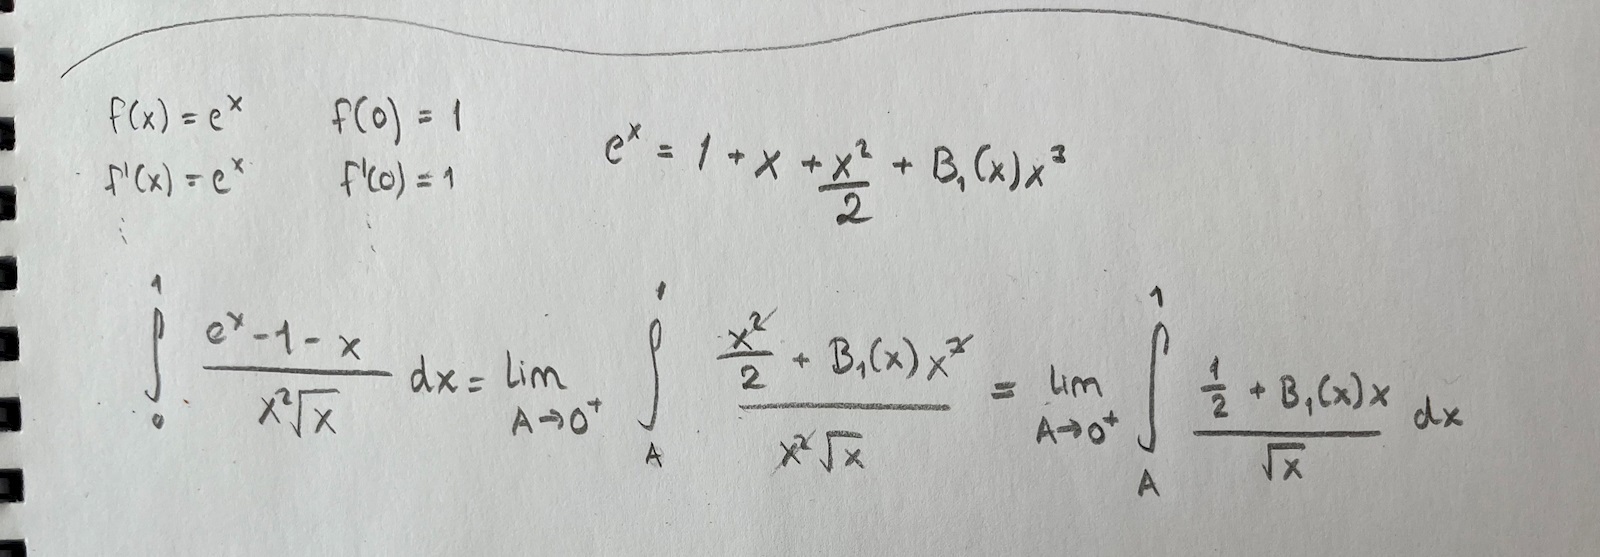 f(x) = e^x f(0) = 1
f'(x) = e^x f'(0) = 1
⋮ ⋮
e^x = 1 + x + x^2/2 + B_1(x)x^3
∫_0^1 (e^x - 1 - x)/(x^2√x) dx = lim_{A→0^+} ∫_A^1 (x^2/2 + B_1(x)x^3)/(x^2√x) = lim_{A→0^+} ∫_A^1 (1/2 + B_1(x)x)/√x dx